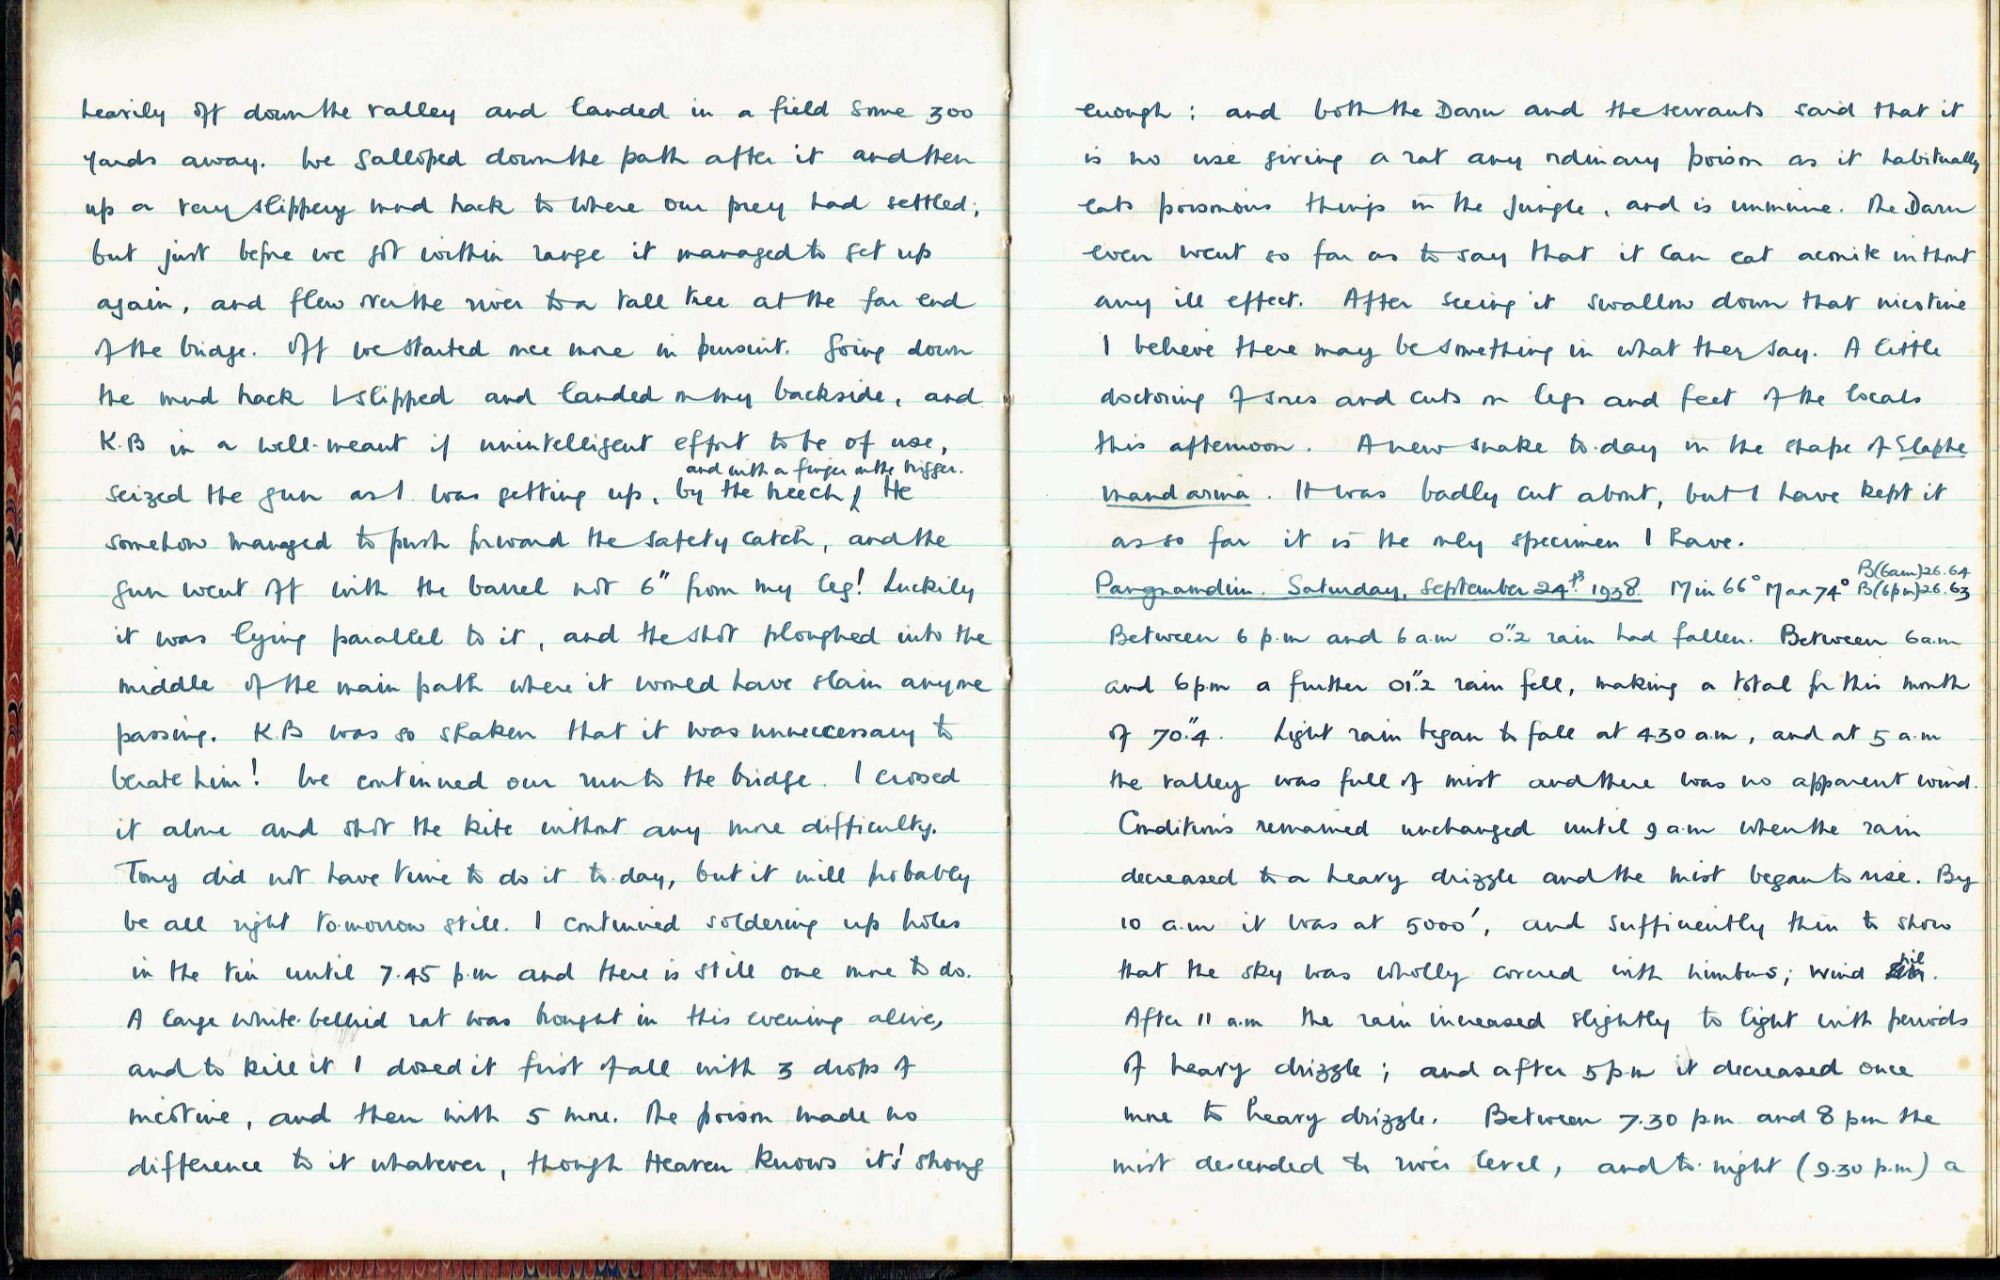 heavily off down the valley and landed in a field some 300
yards away. We galloped down the path after it and then
up a very slippery mud track to where our prey had settled;
but just before we got within range it managed to get up
again, and flew over the river to a tall tree at the far end
of the bridge. Off we started once more in pursuit. Going down
the mud track I slipped and landed on my backside, and
K.B in a well-meant if unintelligent effort to be of use,
and with a finger on the trigger.
seized the gun as I was getting up, by the breech, He
somehow managed to push forward the safety catch, and the
gun went off with the barrel not 6" from my leg! Luckily
it was lying parallel to it, and the shot ploughed into the
middle of the main path where it would have slain anyone
passing. K.B was so shaken that it was unneccessary to
berate him! We continued our run to the bridge. I crossed
it alone and shot the kite without any more difficulty.
Tony did not have time to do it to-day, but it will probably
be all right to-morrow still. I continued soldering up holes
in the tin until 7.45 p.m and there is still one more to do.
A large white-bellied rat was brought in this evening alive,
and to kill it I dosed it first of all with 3 drops of
nicotine, and then with 5 more. The poison made no
difference to it whatever, though Heaven knows it's strong
enough; and both the Daru and the servants said that it
is no use giving a rat any ordinary poison as it habitually
eats poisonous things in the jungle, and is immune. The Daru
even went so far as to say that it can eat aconite without
any ill effect. After seeing it swallow down that nicotine
I believe there may be something in what they say. A little
doctoring of sores and cuts on legs and feet of the locals
this afternoon. A new snake to-day in the shape of Elaphe
mandarina. It was badly cut about, but I have kept it
as so far it is the only specimen I have.
Pangnamdim. Saturday, September 24th 1938. Min 66° Max 74° B(6am)26.64 B(6pm)26.63
Between 6 p.m and 6 a.m 0".2 rain had fallen. Between 6 a.m
and 6 p.m a further 01".2 rain fell, making a total for this month
of 70".4. Light rain began to fall at 4.30 a.m, and at 5 a.m
the valley was full of mist and there was no apparent wind.
Conditions remained unchanged until 9 a.m when the rain
decreased to a heavy drizzle and the mist began to rise. By
10 a.m it was at 5000', and sufficiently thin to show
that the sky was wholly covered with nimbus; wind nil.
After 11 a.m the rain increased slightly to light with periods
of heavy drizzle; and after 5 p.m it decreased once
more to heavy drizzle. Between 7.30 p.m and 8 p.m the
mist descended to river level, and to-night (9.30 p.m) a